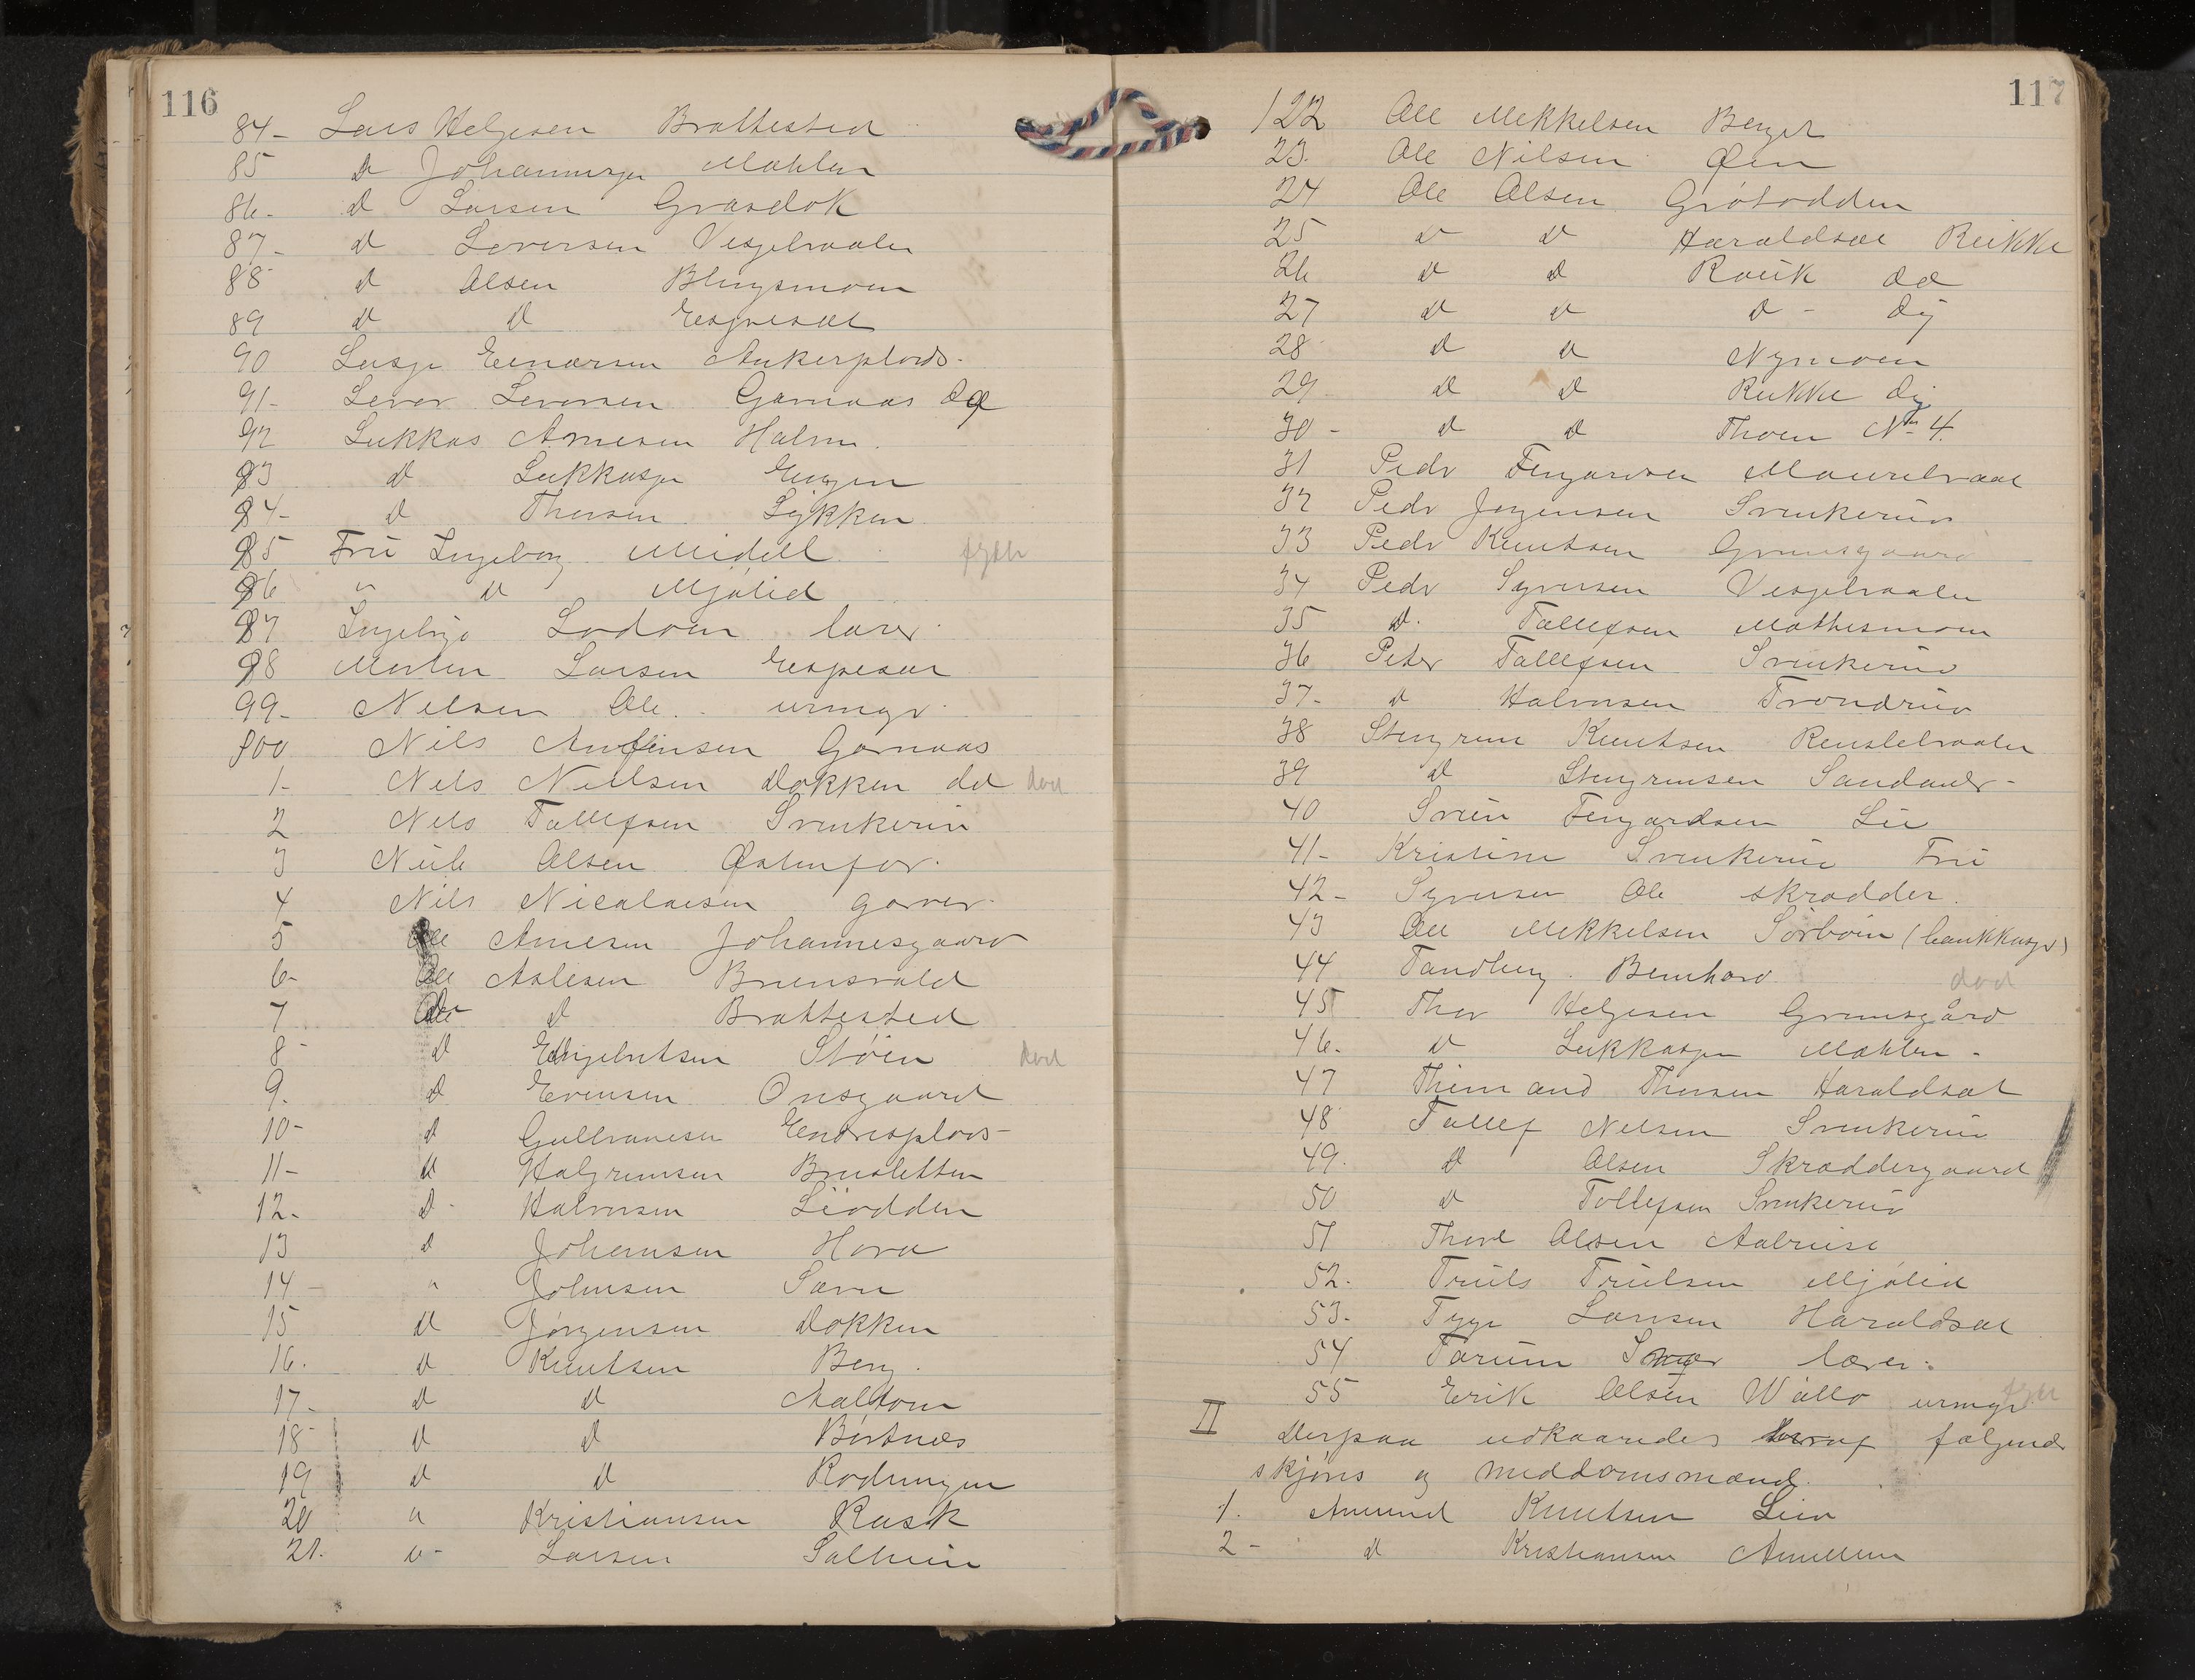 116
84- Lars Helgesen Brattested
85 d Johannesen Mæhlen
86- d Larsen Gvasdok
87- d Leversen Vesselvaalen
88- d Olsen Blugsmoen
89 d d Eispesæt
90 Lasse Einarsen Ankerplads.
91- Levor Levorsen Garnaas
92 Lukkas Arnesen Halvm.
93 d Lukkassen Engen
94- d Thorsen Lykken
95 Fru Ingeborg Midell
96 " d Mjølid
97 Ingebrigt lærer
98 Morten Larsen Espeset
99- Nilsen Ole urmgr
100 Nils Andfinsen Garnaas
1- Nils Nillsen Dokken dd død
2 Nils Tollefsen Svenkerud
3 Nils Olsen Østenfor.
4 Nils Nicolaisen garver
5 Ole Arnesen Johannesgaard
6- Ole Aslesen Bruusvold
7 Ole d Brattested
8- d Engebretsen Støen død
9. d Evensen Onsgaard
10- d Gulbransen Endresplads
11- d Halgrimsen Brusletten
12- d- Halvorsen Liodden
13 d Johansen Hova
14- " Johnsen Sævre
15 d Jørgensen Dokken
16. d Knutsen Berg.
17- d d
18- d d Børtnes
19 d d Rodningen
20 " Kristiansen Rask
21. d- Larsen Solheim
117
122 Ole Mikkelsen Berget
23. Ole Nilsen Øen
24 Ole Olsen Grøtodden
25 d d Haraldset Rukke
26 d d Roiik dd
27 d d d - dy
28 d d Nymoen
29 d d Rukke dy
30- d d Thoen No 4.
31 Peder Fingarsen
32 Peder Jørgensen Svenkerud
33 Peder Knutsen Grimsgaard
34 Peder Syversen Vesselvaalen
35 d. Tollefsen Mathismoen
36 Peter Tollefsen Svenkerud
37- d Halvorsen Trondrud
38 Stengrim Knutsen Renslelvaalen
39 d Stengrimsen Sandaker-
40 Svein Fingardsen Lie
41- Kristine Svenkerud Fru
42- Syversen Ole skrædder.
43 Ole Mikkelsen Sørboen (bankkasse)
44 Tandberg. Bernhard død
45 Thor Helgesen Grimsgård
46. d Lukkassen Mæhlen-
47 Thimand Thorsen Haraldset
48 Tollef Nilsen Svenkerud
49. d Olsen Skræddergaard
50 d Tollefsen Svenkerud
51 Thore Olsen Aabruse
52. Truls Trulsen Mjølid
53. Tyge Larsen Haraldset
54 Tarum lærer.
55 Erik Olsen Wållo urmgr
II Derpaa udkaaredes følgende
skjøns og meddomsmænd.
1. Amund Knutsen Lien
2- d Kristiansen